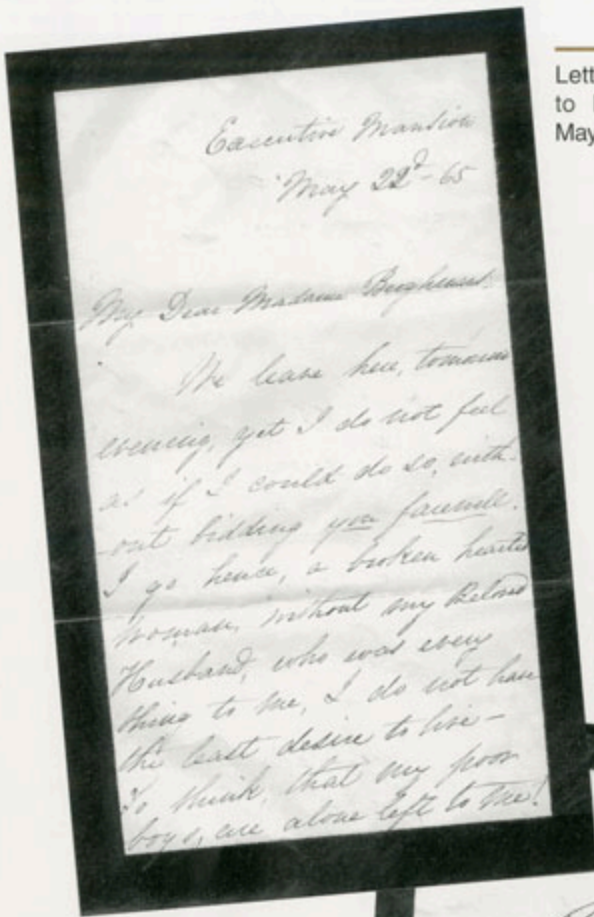 Lett
to
May
Executive Mansion
May 22d - 65
My Dear Madame
We leave here, tomorrow
evening, yet I do not feel
as if I could do so, with-
out bidding you farewell.
I go hence, a broken hearted
woman, without my Beloved
Husband, who was every
thing to me, I do not have
the least desire to live -
To think, that my poor
boys, are alone left to me!